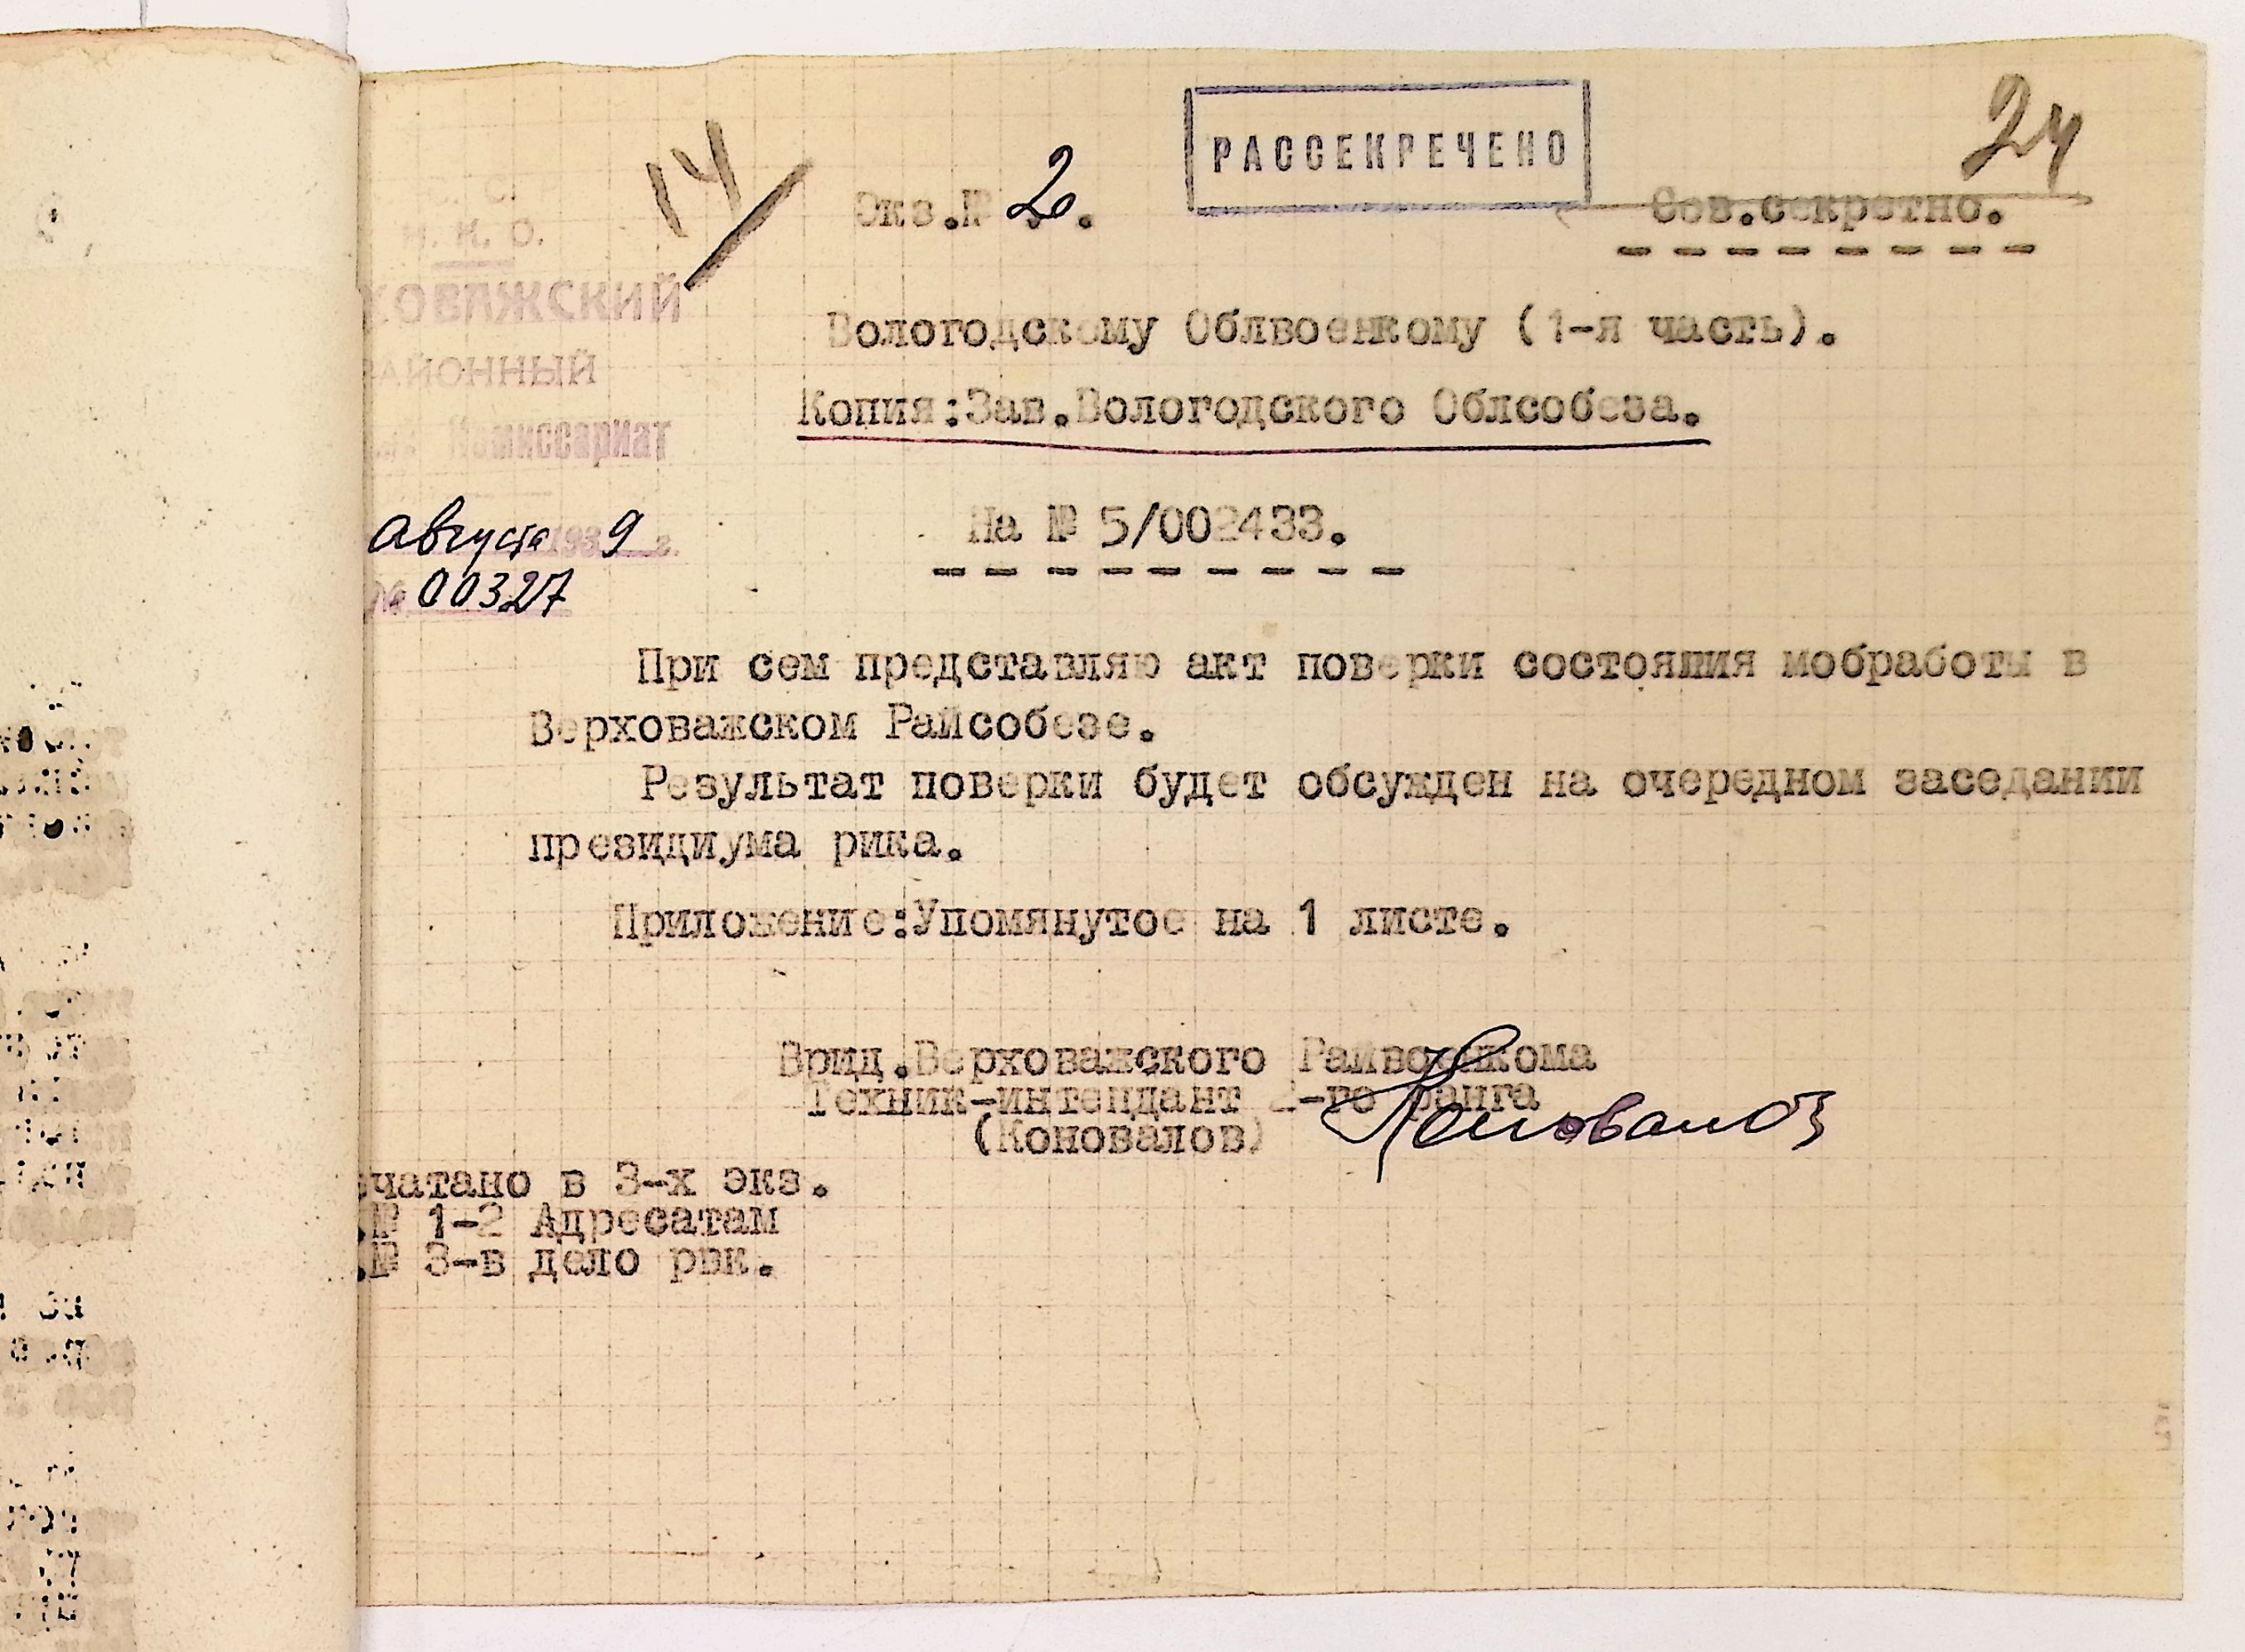 14
24
РАССЕКРЕЧЕНО
Экз.№ 2.
Сов.секретно.
Н. К. О.
ХОВАЖСКИЙ
РАЙОННЫЙ
Комиссариат
августа 1939 г.
№ 00327
Вологодскому Облвоенкому (1-я часть).
Копия:Зав.Вологодского Облсобеза.
На № 5/002433.
При сем представляю акт поверки состояния мобработы в
Верховажском Райсобезе.
Результат поверки будет обсужден на очередном заседании
президиума рика.
Приложение:Упомянутое на 1 листе.
Врид.Верховажского Райвоенкома
Техник-интендант 2-го ранга
(Коновалов) Коновалов
чатано в 3-х экз.
.№ 1-2 Адресатам
.№ 3-в дело рвк.